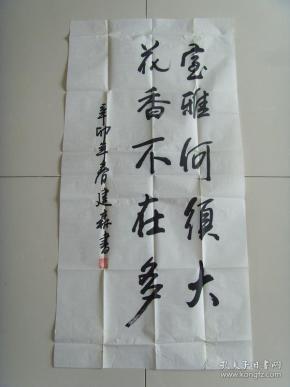 室雅何须大
花香不在多
辛卯年春建森书
孔夫子旧书网